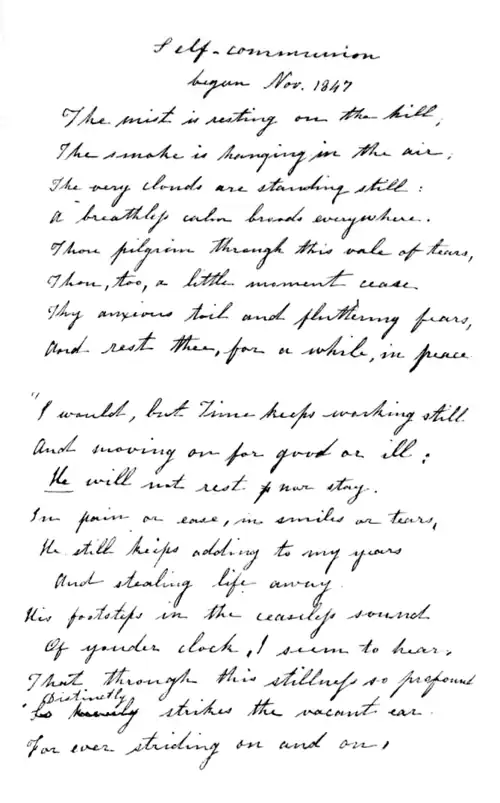 Self-communion
began Nov. 1847
The mist is resting on the hill;
The smoke is hanging in the air;
The very clouds are standing still:
A breathless calm broods everywhere.
Thou pilgrim through this vale of tears,
Thou, too, a little moment cease
Thy anxious toil and fluttering fears,
And rest thee, for a while, in peace.
"I would, but Time keeps working still
And moving on for good or ill:
He will not rest nor stay.
In pain or ease, in smiles or tears,
He still keeps adding to my years
And stealing life away.
His footsteps in the ceaseless sound
Of yonder clock, I seem to hear,
That through this stillness so profound
Distinctly
strikes the vacant ear.
For ever striding on and on,